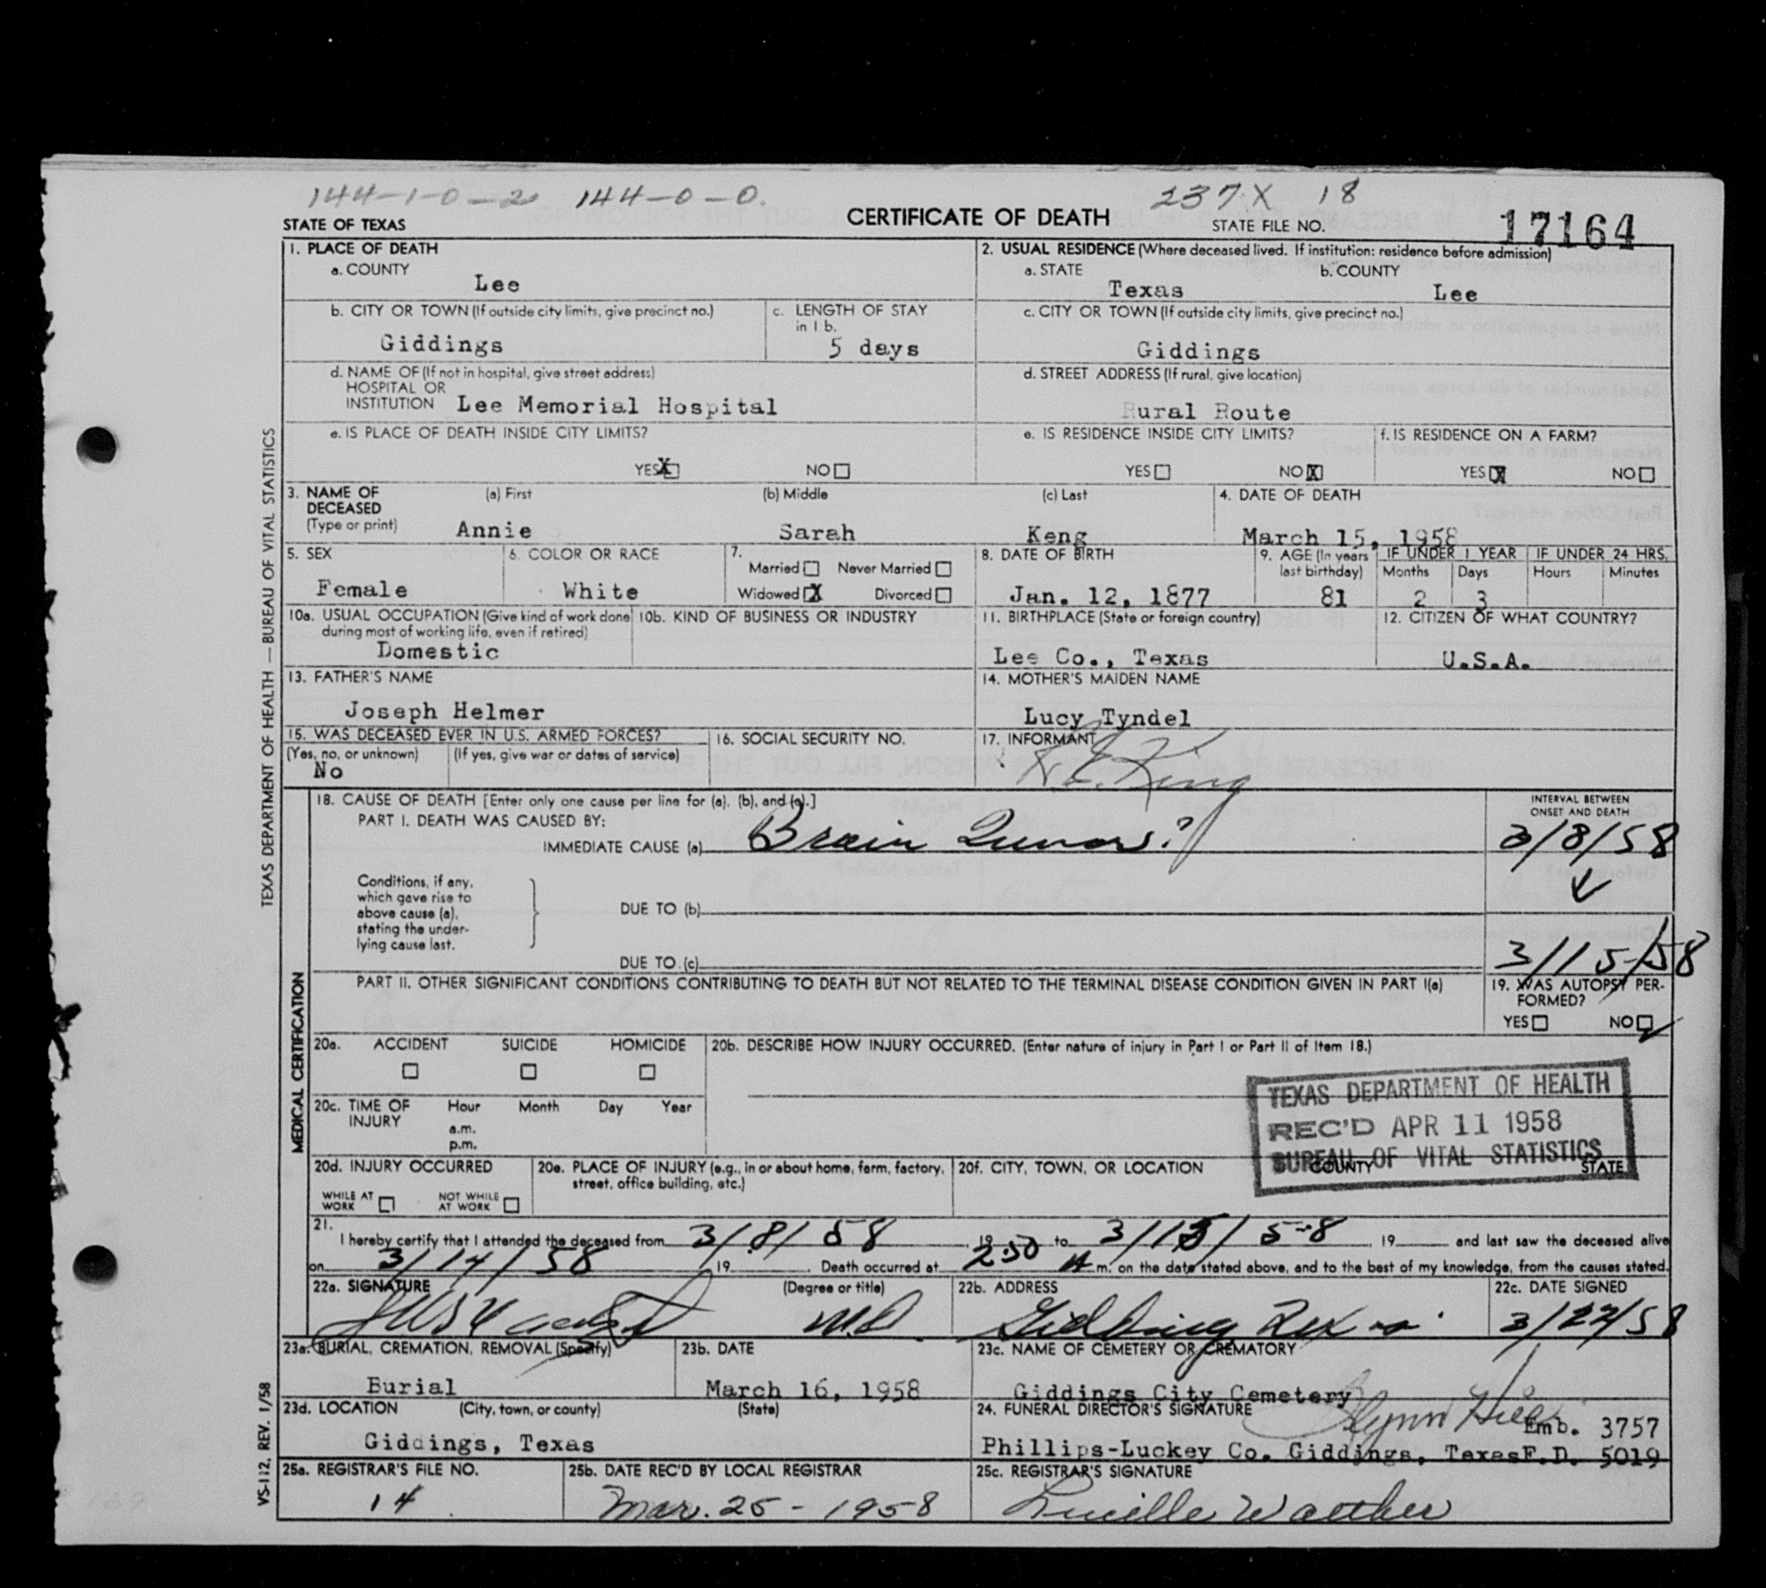 144-1-0-2 144-0-0. 237X 18
STATE OF TEXAS CERTIFICATE OF DEATH STATE FILE NO. 17164
1. PLACE OF DEATH
a. COUNTY
Lee
2. USUAL RESIDENCE (Where deceased lived. If institution: residence before admission)
a. STATE b. COUNTY
Texas Lee
b. CITY OR TOWN (If outside city limits, give precinct no.)
Giddings
c. LENGTH OF STAY
in 1 b.
5 days
c. CITY OR TOWN (If outside city limits, give precinct no.)
Giddings
d. NAME OF (If not in hospital, give street address)
HOSPITAL OR
INSTITUTION Lee Memorial Hospital
d. STREET ADDRESS (If rural, give location)
Rural Route
e. IS PLACE OF DEATH INSIDE CITY LIMITS?
YES X NO
e. IS RESIDENCE INSIDE CITY LIMITS?
YES NO X
f. IS RESIDENCE ON A FARM?
YES X NO
3. NAME OF DECEASED (Type or print)
(a) First (b) Middle (c) Last
Annie Sarah Keng
4. DATE OF DEATH
March 15, 1958
5. SEX
Female
6. COLOR OR RACE
White
7.
Married Never Married
Widowed X Divorced
8. DATE OF BIRTH
Jan. 12, 1877
9. AGE (In years
last birthday)
81
IF UNDER 1 YEAR IF UNDER 24 HRS.
Months Days Hours Minutes
2 3
10a. USUAL OCCUPATION (Give kind of work done
during most of working life, even if retired)
Domestic
10b. KIND OF BUSINESS OR INDUSTRY
11. BIRTHPLACE (State or foreign country)
Lee Co., Texas
12. CITIZEN OF WHAT COUNTRY?
U.S.A.
13. FATHER'S NAME
Joseph Helmer
14. MOTHER'S MAIDEN NAME
Lucy Tyndel
15. WAS DECEASED EVER IN U.S. ARMED FORCES?
(Yes, no, or unknown) (If yes, give war or dates of service)
No
16. SOCIAL SECURITY NO.
17. INFORMANT
18. CAUSE OF DEATH [Enter only one cause per line for (a), (b), and (c).]
PART I. DEATH WAS CAUSED BY:
IMMEDIATE CAUSE (a) Brain Tumor?
INTERVAL BETWEEN
ONSET AND DEATH
3/8/58
Conditions, if any,
which gave rise to
above cause (a),
stating the under-
lying cause last.
DUE TO (b)
DUE TO (c)
3/15/58
PART II. OTHER SIGNIFICANT CONDITIONS CONTRIBUTING TO DEATH BUT NOT RELATED TO THE TERMINAL DISEASE CONDITION GIVEN IN PART I(a)
19. WAS AUTOPSY PER-
FORMED?
YES NO
20a. ACCIDENT SUICIDE HOMICIDE
20b. DESCRIBE HOW INJURY OCCURRED. (Enter nature of injury in Part I or Part II of Item 18.)
20c. TIME OF INJURY Hour Month Day Year
a.m.
p.m.
TEXAS DEPARTMENT OF HEALTH
REC'D APR 11 1958
BUREAU OF VITAL STATISTICS
20d. INJURY OCCURRED
WHILE AT WORK NOT WHILE AT WORK
20e. PLACE OF INJURY (e.g., in or about home, farm, factory,
street, office building, etc.)
20f. CITY, TOWN, OR LOCATION COUNTY STATE
21.
I hereby certify that I attended the deceased from 3/8/58, 19 to 3/15/58, 19 and last saw the deceased alive
on 3/14/58 19 . Death occurred at 2:50 A m. on the date stated above, and to the best of my knowledge, from the causes stated.
22a. SIGNATURE (Degree or title)
M.D.
22b. ADDRESS
Giddings Texas
22c. DATE SIGNED
3/22/58
23a. BURIAL, CREMATION, REMOVAL (Specify)
Burial
23b. DATE
March 16, 1958
23c. NAME OF CEMETERY OR CREMATORY
Giddings City Cemetery
23d. LOCATION (City, town, or county) (State)
Giddings, Texas
24. FUNERAL DIRECTOR'S SIGNATURE
Emb. 3757
Phillips-Luckey Co. Giddings, Texas F.D. 5019
25a. REGISTRAR'S FILE NO.
14
25b. DATE REC'D BY LOCAL REGISTRAR
Mar. 25 - 1958
25c. REGISTRAR'S SIGNATURE
Lucille Walther
TEXAS DEPARTMENT OF HEALTH — BUREAU OF VITAL STATISTICS
MEDICAL CERTIFICATION
VS-112, REV. 1/58